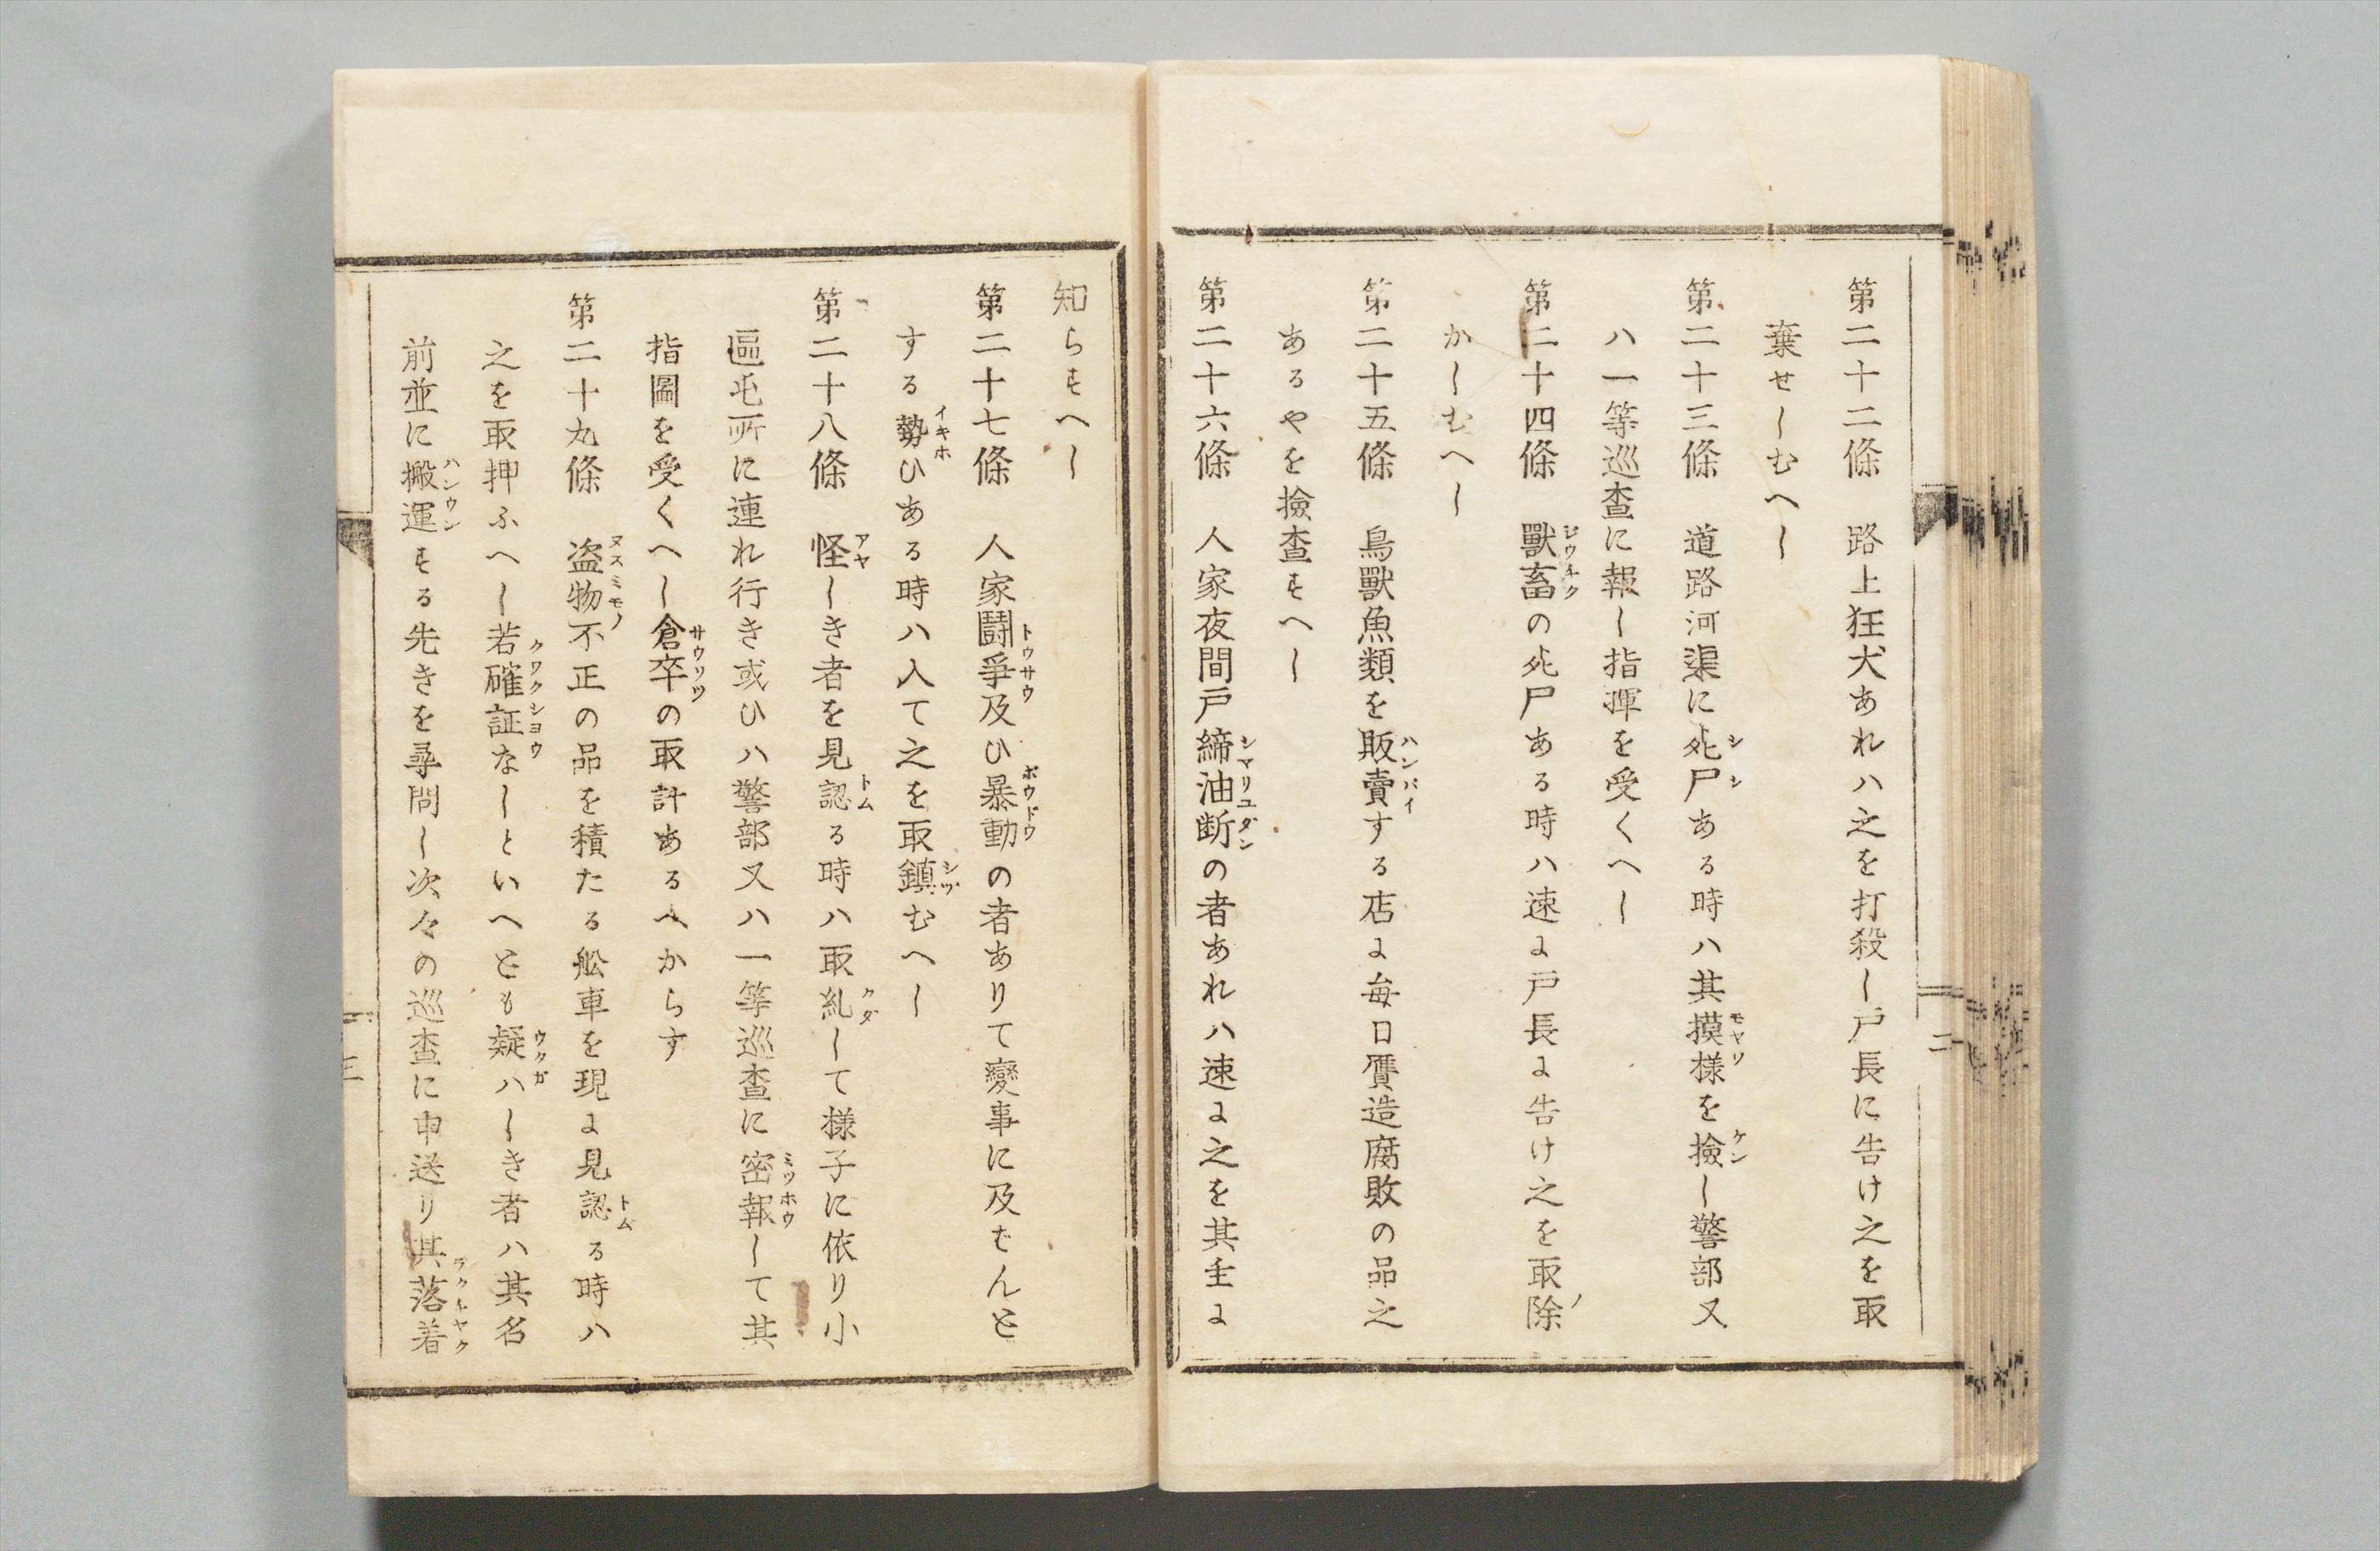 第二十二條　路上狂犬あれハ之を打殺し戸長に告け之を取
棄せしむへし
第二十三條　道路河渠に死尸ある時ハ其摸様を撿し警部又
ハ一等巡査に報し指揮を受くへし
第二十四條　獸畜の死尸ある時ハ速に戸長に告け之を取除
かしむへし
第二十五條　鳥獸魚類を販賣する店に毎日贋造腐敗の品之
あるやを撿査すへし
第二十六條　人家夜間戸締油断の者あれハ速に之を其主に
二
知らすへし
第二十七條　人家鬪爭及ひ暴動の者ありて變事に及むんと
する勢ひある時ハ入て之を取鎮むへし
第二十八條　怪しき者を見認る時ハ取糺して様子に依り小
區屯所に連れ行き或ひハ警部又ハ一等巡査に密報して其
指圖を受くへし倉卒の取計あるへからす
第二十九條　盗物不正の品を積たる舩車を現に見認る時ハ
之を取押ふへし若確証なしといへとも疑ハしき者ハ其名
前並に搬運する先きを尋問し次々の巡査に申送り其落着
三